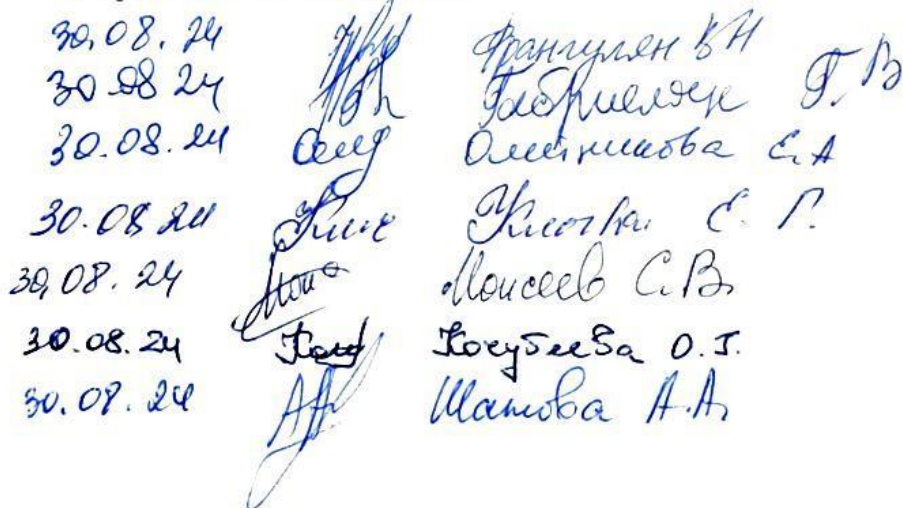 30.08.24 Франгулян В Н
30 08 24 Габриелян Г. В
30.08.24 Олейникова Е.А
30.08 24 Е. Г.
30,08.24 Моисеев С.В.
30.08.24 Кочубеева О.Г.
30.08.24 Шатова А.А.